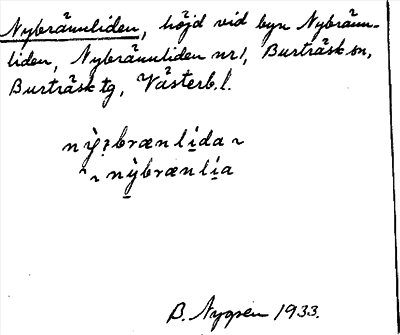 Nybrännliden, höjd vid byn Nybränn-
liden, Nybrännliden nr 1, Burträsk sn,
Burträsk tg, Västerb. l.
nỳ.brænlida ~
~ nỳbrænlía
B. Nygren 1933.